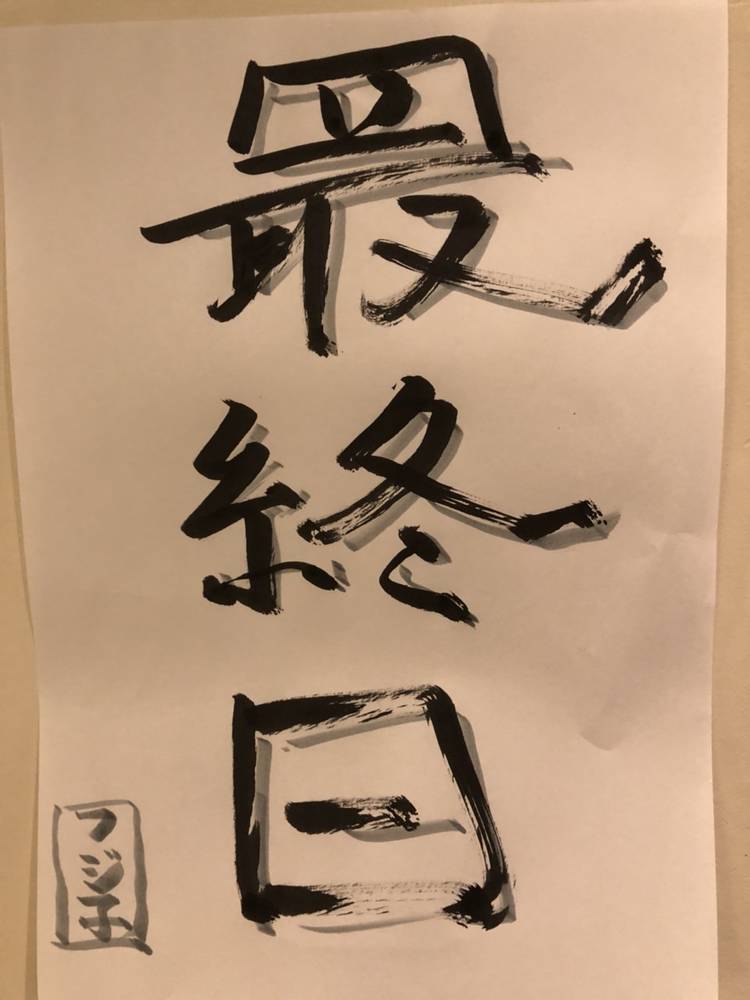 最終日
フジホ